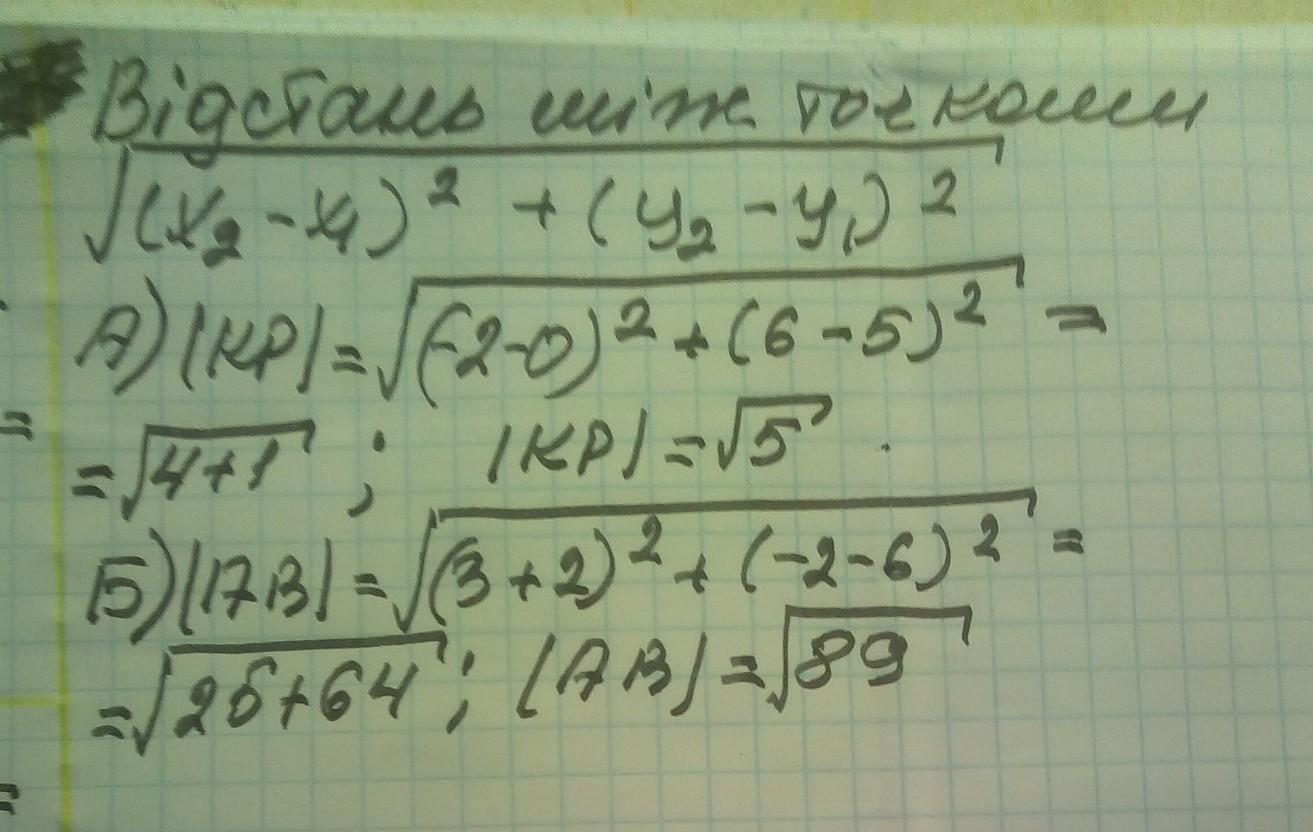 Відстань між точками
√(x₂-x₁)² + (y₂-y₁)²
А) |KP| = √(-2-0)² + (6-5)² =
= √4+1 ; |KP| = √5 .
Б) |AB| = √(3+2)² + (-2-6)² =
= √25+64 ; |AB| = √89
=
=